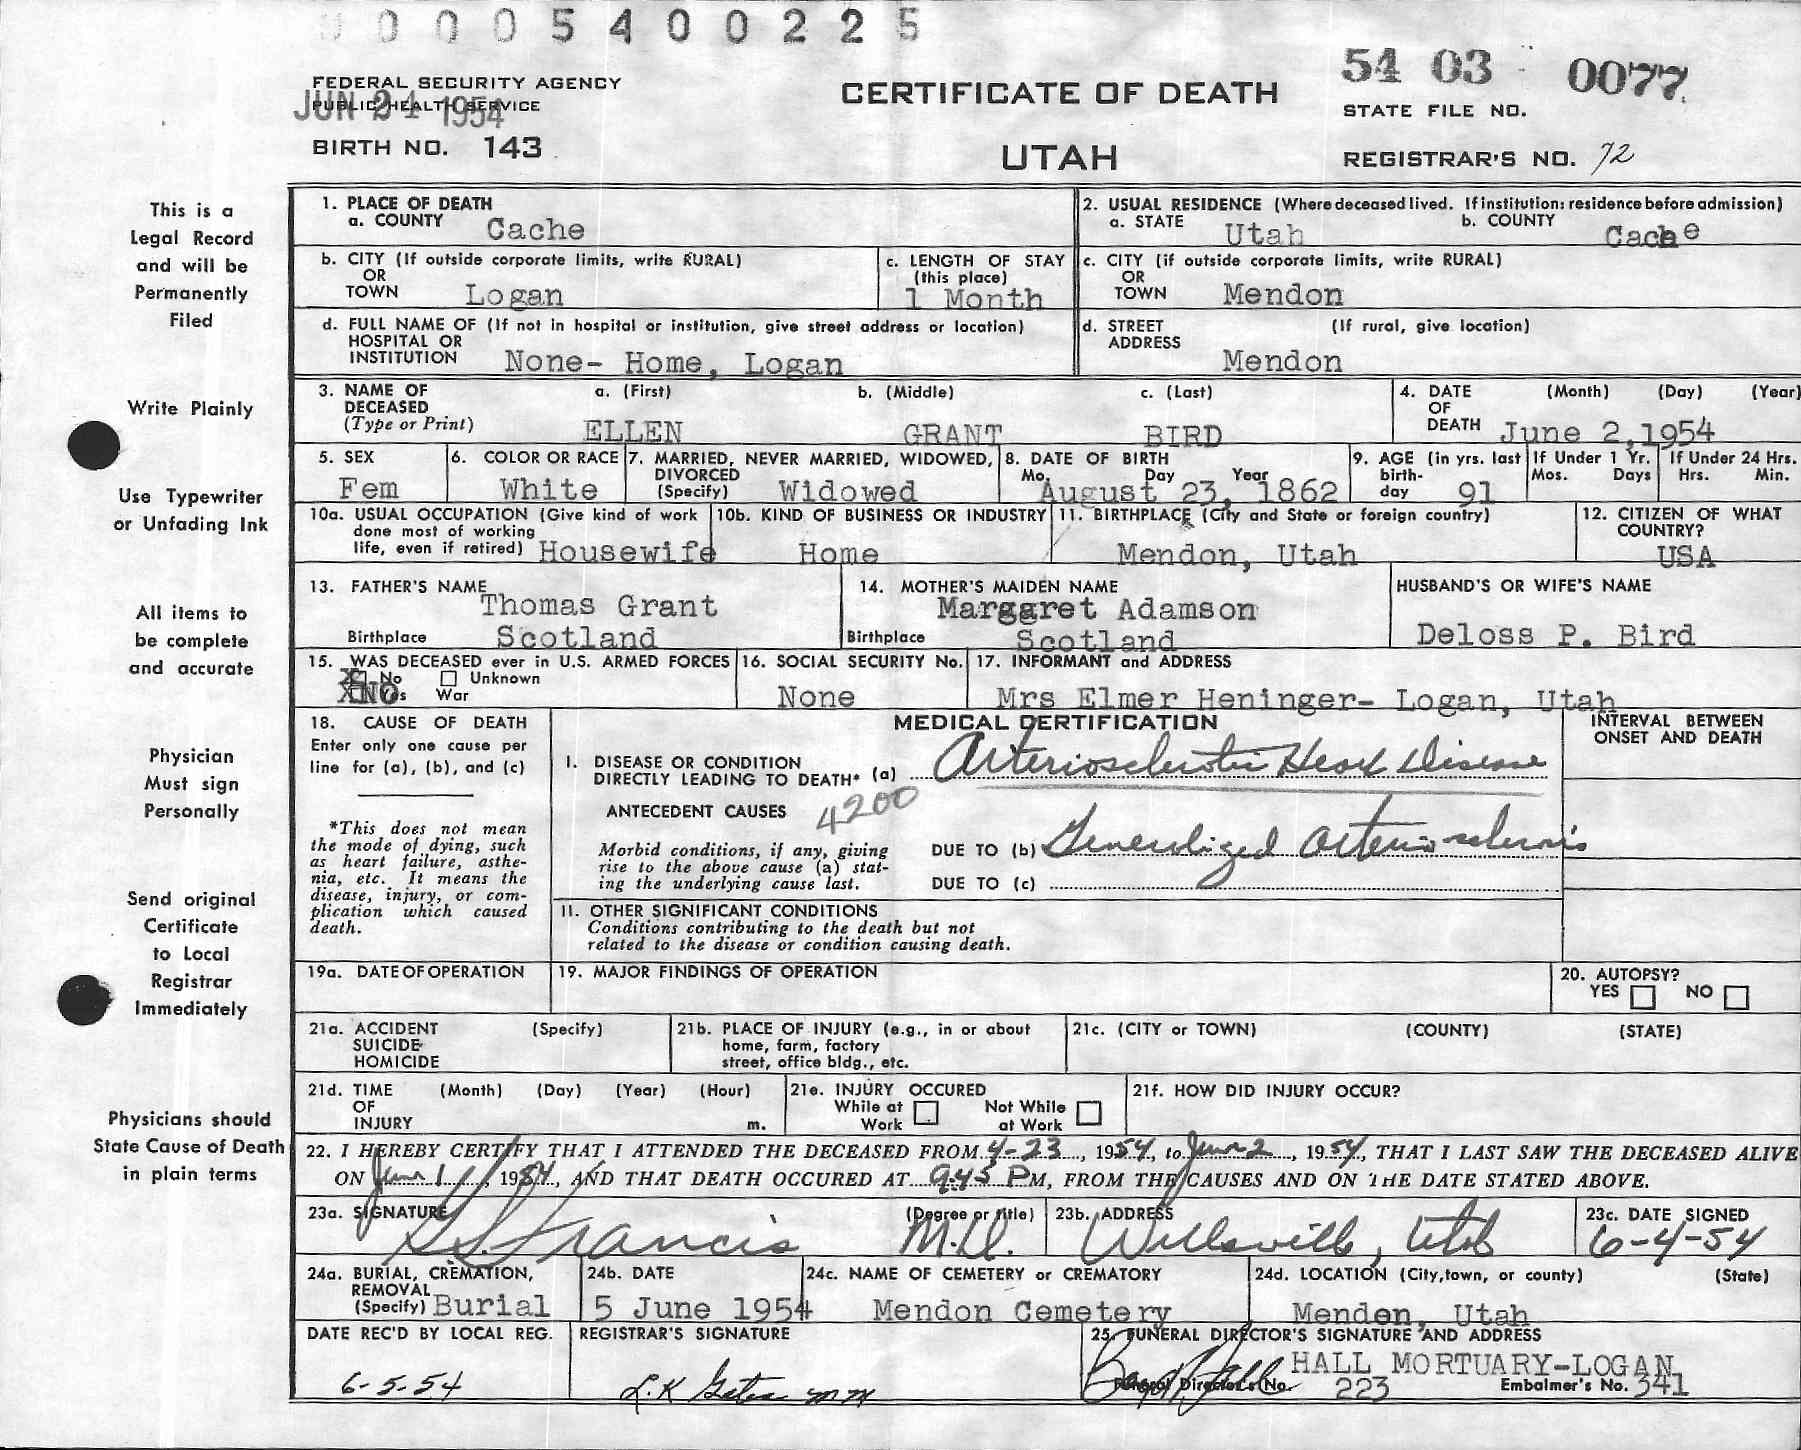 0 0 0 5 4 0 0 2 2 5
54 03 0077
FEDERAL SECURITY AGENCY
PUBLIC HEALTH SERVICE
JUN 24 1954
CERTIFICATE OF DEATH
STATE FILE NO.
BIRTH NO. 143
UTAH
REGISTRAR'S NO. 72
This is a
Legal Record
and will be
Permanently
Filed
Write Plainly
Use Typewriter
or Unfading Ink
All items to
be complete
and accurate
Physician
Must sign
Personally
Send original
Certificate
to Local
Registrar
Immediately
Physicians should
State Cause of Death
in plain terms
1. PLACE OF DEATH
a. COUNTY Cache
2. USUAL RESIDENCE (Where deceased lived. If institution: residence before admission)
a. STATE Utah b. COUNTY Cache
b. CITY (If outside corporate limits, write RURAL)
OR
TOWN Logan
c. LENGTH OF STAY
(this place)
1 Month
c. CITY (if outside corporate limits, write RURAL)
OR
TOWN Mendon
d. FULL NAME OF (If not in hospital or institution, give street address or location)
HOSPITAL OR
INSTITUTION None- Home, Logan
d. STREET (If rural, give location)
ADDRESS
Mendon
3. NAME OF a. (First) b. (Middle) c. (Last)
DECEASED
(Type or Print) ELLEN GRANT BIRD
4. DATE (Month) (Day) (Year)
OF
DEATH June 2,1954
5. SEX
Fem
6. COLOR OR RACE
White
7. MARRIED, NEVER MARRIED, WIDOWED,
DIVORCED
(Specify) Widowed
8. DATE OF BIRTH
Mo. Day Year
August 23, 1862
9. AGE (in yrs. last
birth-
day 91
If Under 1 Yr.
Mos. Days
If Under 24 Hrs.
Hrs. Min.
10a. USUAL OCCUPATION (Give kind of work
done most of working
life, even if retired) Housewife
10b. KIND OF BUSINESS OR INDUSTRY
Home
11. BIRTHPLACE (City and State or foreign country)
Mendon, Utah
12. CITIZEN OF WHAT
COUNTRY?
USA
13. FATHER'S NAME
Thomas Grant
Birthplace Scotland
14. MOTHER'S MAIDEN NAME
Margaret Adamson
Birthplace Scotland
HUSBAND'S OR WIFE'S NAME
Deloss P. Bird
15. WAS DECEASED ever in U.S. ARMED FORCES
No Unknown
NO Yes War
16. SOCIAL SECURITY No.
None
17. INFORMANT and ADDRESS
Mrs Elmer Heninger- Logan, Utah
18. CAUSE OF DEATH
Enter only one cause per
line for (a), (b), and (c)
*This does not mean
the mode of dying, such
as heart failure, asthe-
nia, etc. It means the
disease, injury, or com-
plication which caused
death.
MEDICAL CERTIFICATION
INTERVAL BETWEEN
ONSET AND DEATH
I. DISEASE OR CONDITION
DIRECTLY LEADING TO DEATH* (a) Arteriosclerotic Heart Disease
ANTECEDENT CAUSES 4200
Morbid conditions, if any, giving
rise to the above cause (a) stat-
ing the underlying cause last.
DUE TO (b) Generalized Arteriosclerosis
DUE TO (c)
II. OTHER SIGNIFICANT CONDITIONS
Conditions contributing to the death but not
related to the disease or condition causing death.
19a. DATE OF OPERATION
19. MAJOR FINDINGS OF OPERATION
20. AUTOPSY?
YES NO
21a. ACCIDENT (Specify)
SUICIDE
HOMICIDE
21b. PLACE OF INJURY (e.g., in or about
home, farm, factory
street, office bldg., etc.
21c. (CITY or TOWN) (COUNTY) (STATE)
21d. TIME (Month) (Day) (Year) (Hour)
OF
INJURY m.
21e. INJURY OCCURED
While at Not While
Work at Work
21f. HOW DID INJURY OCCUR?
22. I HEREBY CERTIFY THAT I ATTENDED THE DECEASED FROM 4-23, 1954, to June 2, 1954, THAT I LAST SAW THE DECEASED ALIVE
ON June 1, 1954, AND THAT DEATH OCCURED AT 9:45 PM, FROM THE CAUSES AND ON THE DATE STATED ABOVE.
23a. SIGNATURE (Degree or title)
Francis M.D.
23b. ADDRESS
Wellsville, Utah
23c. DATE SIGNED
6-4-54
24a. BURIAL, CREMATION,
REMOVAL
(Specify) Burial
24b. DATE
5 June 1954
24c. NAME OF CEMETERY or CREMATORY
Mendon Cemetery
24d. LOCATION (City,town, or county) (State)
Menden, Utah
DATE REC'D BY LOCAL REG.
6-5-54
REGISTRAR'S SIGNATURE
L.K Gates
25. FUNERAL DIRECTOR'S SIGNATURE AND ADDRESS
HALL MORTUARY-LOGAN
Funeral Director's No. 223 Embalmer's No. 341